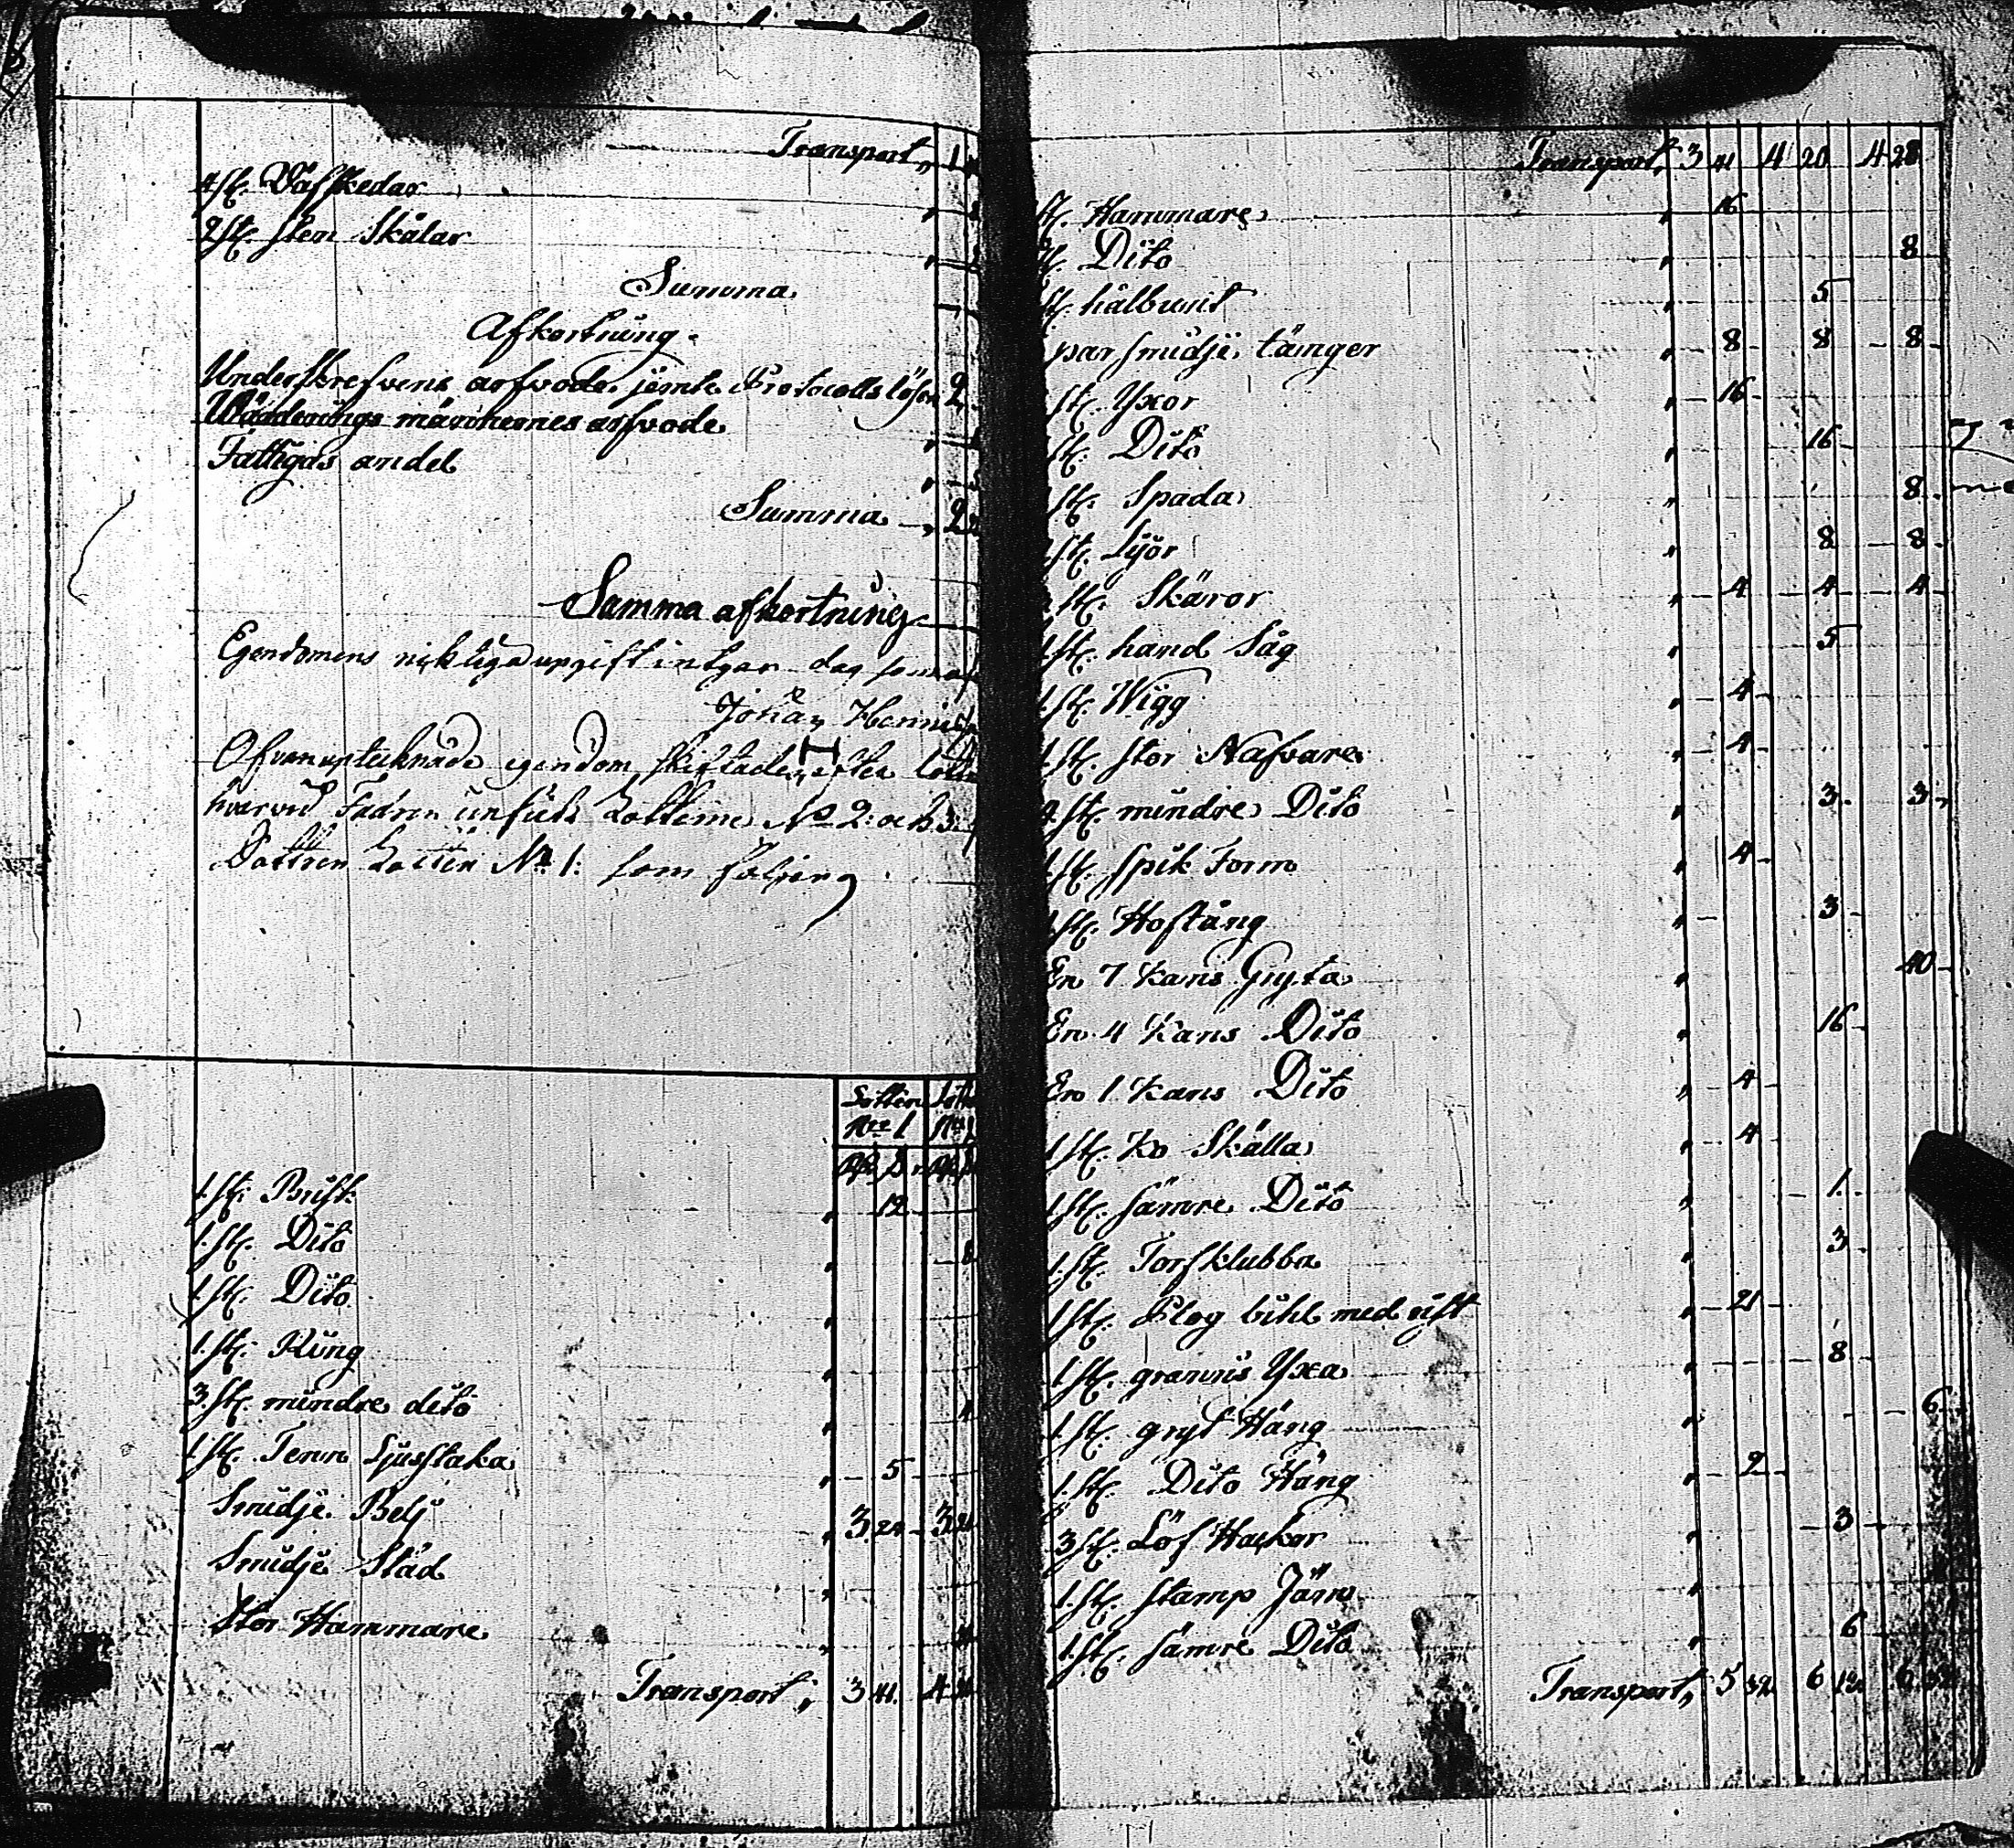 Transport „ 1
4 st. Väfskedar „
2 st. sten Skålar „
Summa
Afkortning.
Underskrefvens arfvode jemte Protocolls lösen 2
Wärderings männernes arfvode „
Fattigas andel „
Summa „ 2
Summa afkortning
Egendomens riktiga upgift intygar dag som
Johan Henri
Ofvanupteknade egendom skiftades efter
hvarvid Fadren Lotterne No 2: och 3:
Dottren Lotten No 1: som följer
Lotten
No 1
1 st. Brisk „ 12
1 st. Dito „
1 st. Dito „
1 st. Ring „
3 st. mindre dito „
1 st. Tenn Ljusstaka „ 5
Smidje Belj „ 3 24 3
Smidje Städ „
Stor Hammare „
Transport „ 3 41 4
Transport „ 3 41 4 20 4 28
st. Hammare „ 16
st. Dito „ 8
st. hålbunit 5
par smidje tänger „ 8 8 8
st. Yxor „ 16
st. Dito „ 16
st. Spada „ 8
st. Lijor „ 8 8
st. Skäror „ 4 4 4
1 st. hand såg „ 5
1 st. Wigg „ 4
1 st. stor Nafvare „ 4
4 st. mindre Dito „ 3 3
1 st. spik Form „ 4
1 st. Hoftång „ 3
En 7 Kans Gryta „ 40
En 4 Kans Dito „ 16
En 1 Kans Dito „ 4
1 st. Ko Skälla „ 4
1 st. sämre Dito „ 1
1 st. Torfklubba „ 3
1 st. Plog bihl med rist „ 21
1 st. granris Yxa „ 8
1 st. gryt Häng „ 6
1 st. Dito Häng „ 2
3 st. Löf Hackor „ 3
1 st. stamp Järn „
1 st. sämre Dito „ 6
Transport „ 5 6 6